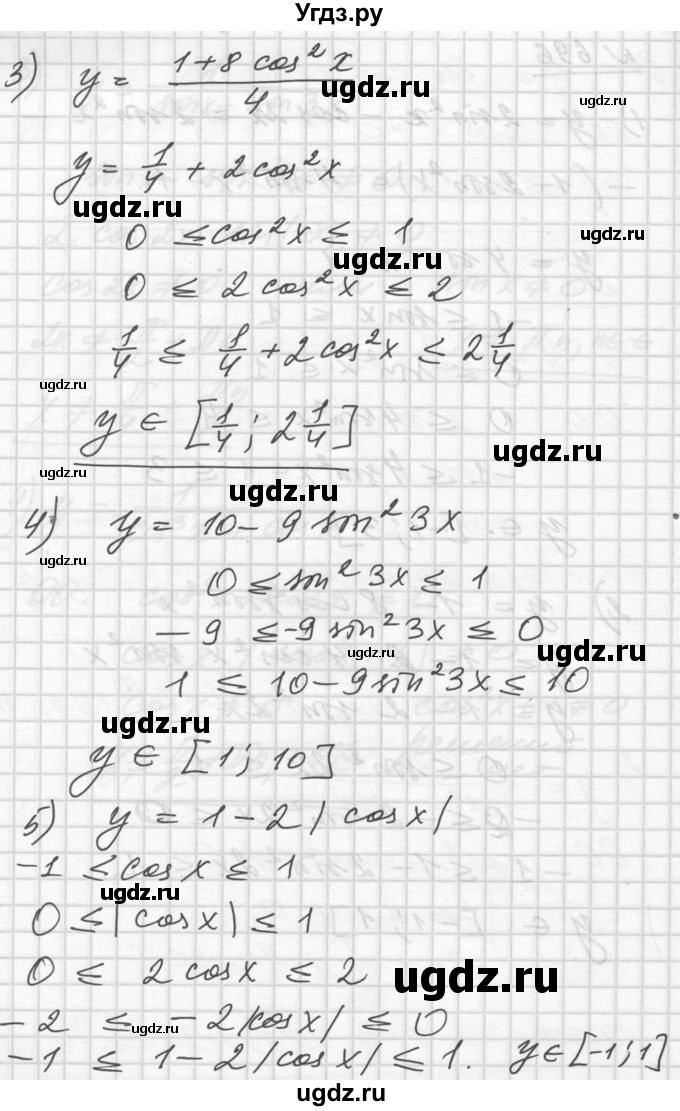 Угдз.ру
3) y = (1+8 cos²x)/4
ugdz.ru
y = 1/4 + 2cos²x
ugdz.ru
0 ≤ cos²x ≤ 1
ugdz.ru
ugdz.ru
0 ≤ 2cos²x ≤ 2
1/4 ≤ 1/4 + 2cos²x ≤ 2 1/4
ugdz.ru
y ∈ [1/4; 2 1/4]
ugdz.ru
ugdz.ru
ugdz.ru
4) y = 10 - 9 sin²3x
0 ≤ sin²3x ≤ 1
-9 ≤ -9 sin²3x ≤ 0
ugdz.ru
ugdz.ru
1 ≤ 10 - 9sin²3x ≤ 10
ugdz.ru
y ∈ [1; 10]
5) y = 1 - 2|cosx|
-1 ≤ cosx ≤ 1
ugdz.ru
0 ≤ |cosx| ≤ 1
0 ≤ 2cosx ≤ 2
ugdz.ru
-2 ≤ -2|cosx| ≤ 0
ugdz.ru
-1 ≤ 1 - 2|cosx| ≤ 1. y ∈ [-1; 1]
ugdz.ru